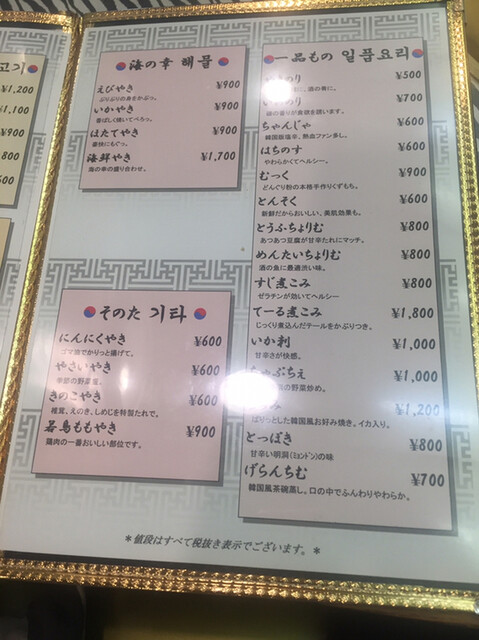 고기
¥1,200
¥1,100
¥900
800
600
海の幸 해물
えびやき ¥900
ぷりぷりの身をかぶっ。
いかやき ¥900
香ばしく焼いてぺろっ。
ほたてやき ¥900
豪快にもぐっ。
海鮮やき ¥1,700
海の幸の盛り合わせ。
そのた 기타
にんにくやき ¥600
ゴマ油でかりっと揚げて。
やさいやき ¥600
季節の野菜
きのこやき ¥600
椎茸、えのき、しめじを特製だれで。
若鳥ももやき ¥900
鶏肉の一番おいしい部位です。
一品もの 일품요리
のり ¥500
に、酒の肴に。
¥700
ちゃんじゃ ¥600
韓国版塩辛、熱血ファン多し。
はちのす ¥600
やわらかくてヘルシー。
むっく ¥900
どんぐり粉の本格手作りくずもち。
とんそく ¥600
新鮮だからおいしい、美肌効果も。
とうふちょりむ ¥800
あつあつ豆腐が甘辛たれにマッチ。
めんたいちょりむ ¥800
酒の魚に最適渋い味。
すじ煮こみ ¥800
ゼラチンが効いてヘルシー
てーる煮こみ ¥1,800
じっくり煮込んだテールをかぶりつき。
いか刺 ¥1,000
甘辛さが快感。
ちぇ ¥1,000
の野菜炒め。
¥1,200
ぱりっとした韓国風お好み焼き。イカ入り。
とっぽき ¥800
甘辛い明洞(ミョンドン)の味
げらんちむ ¥700
韓国風茶碗蒸し。口の中でふんわりやわらか。
＊値段はすべて税抜き表示でございます。＊